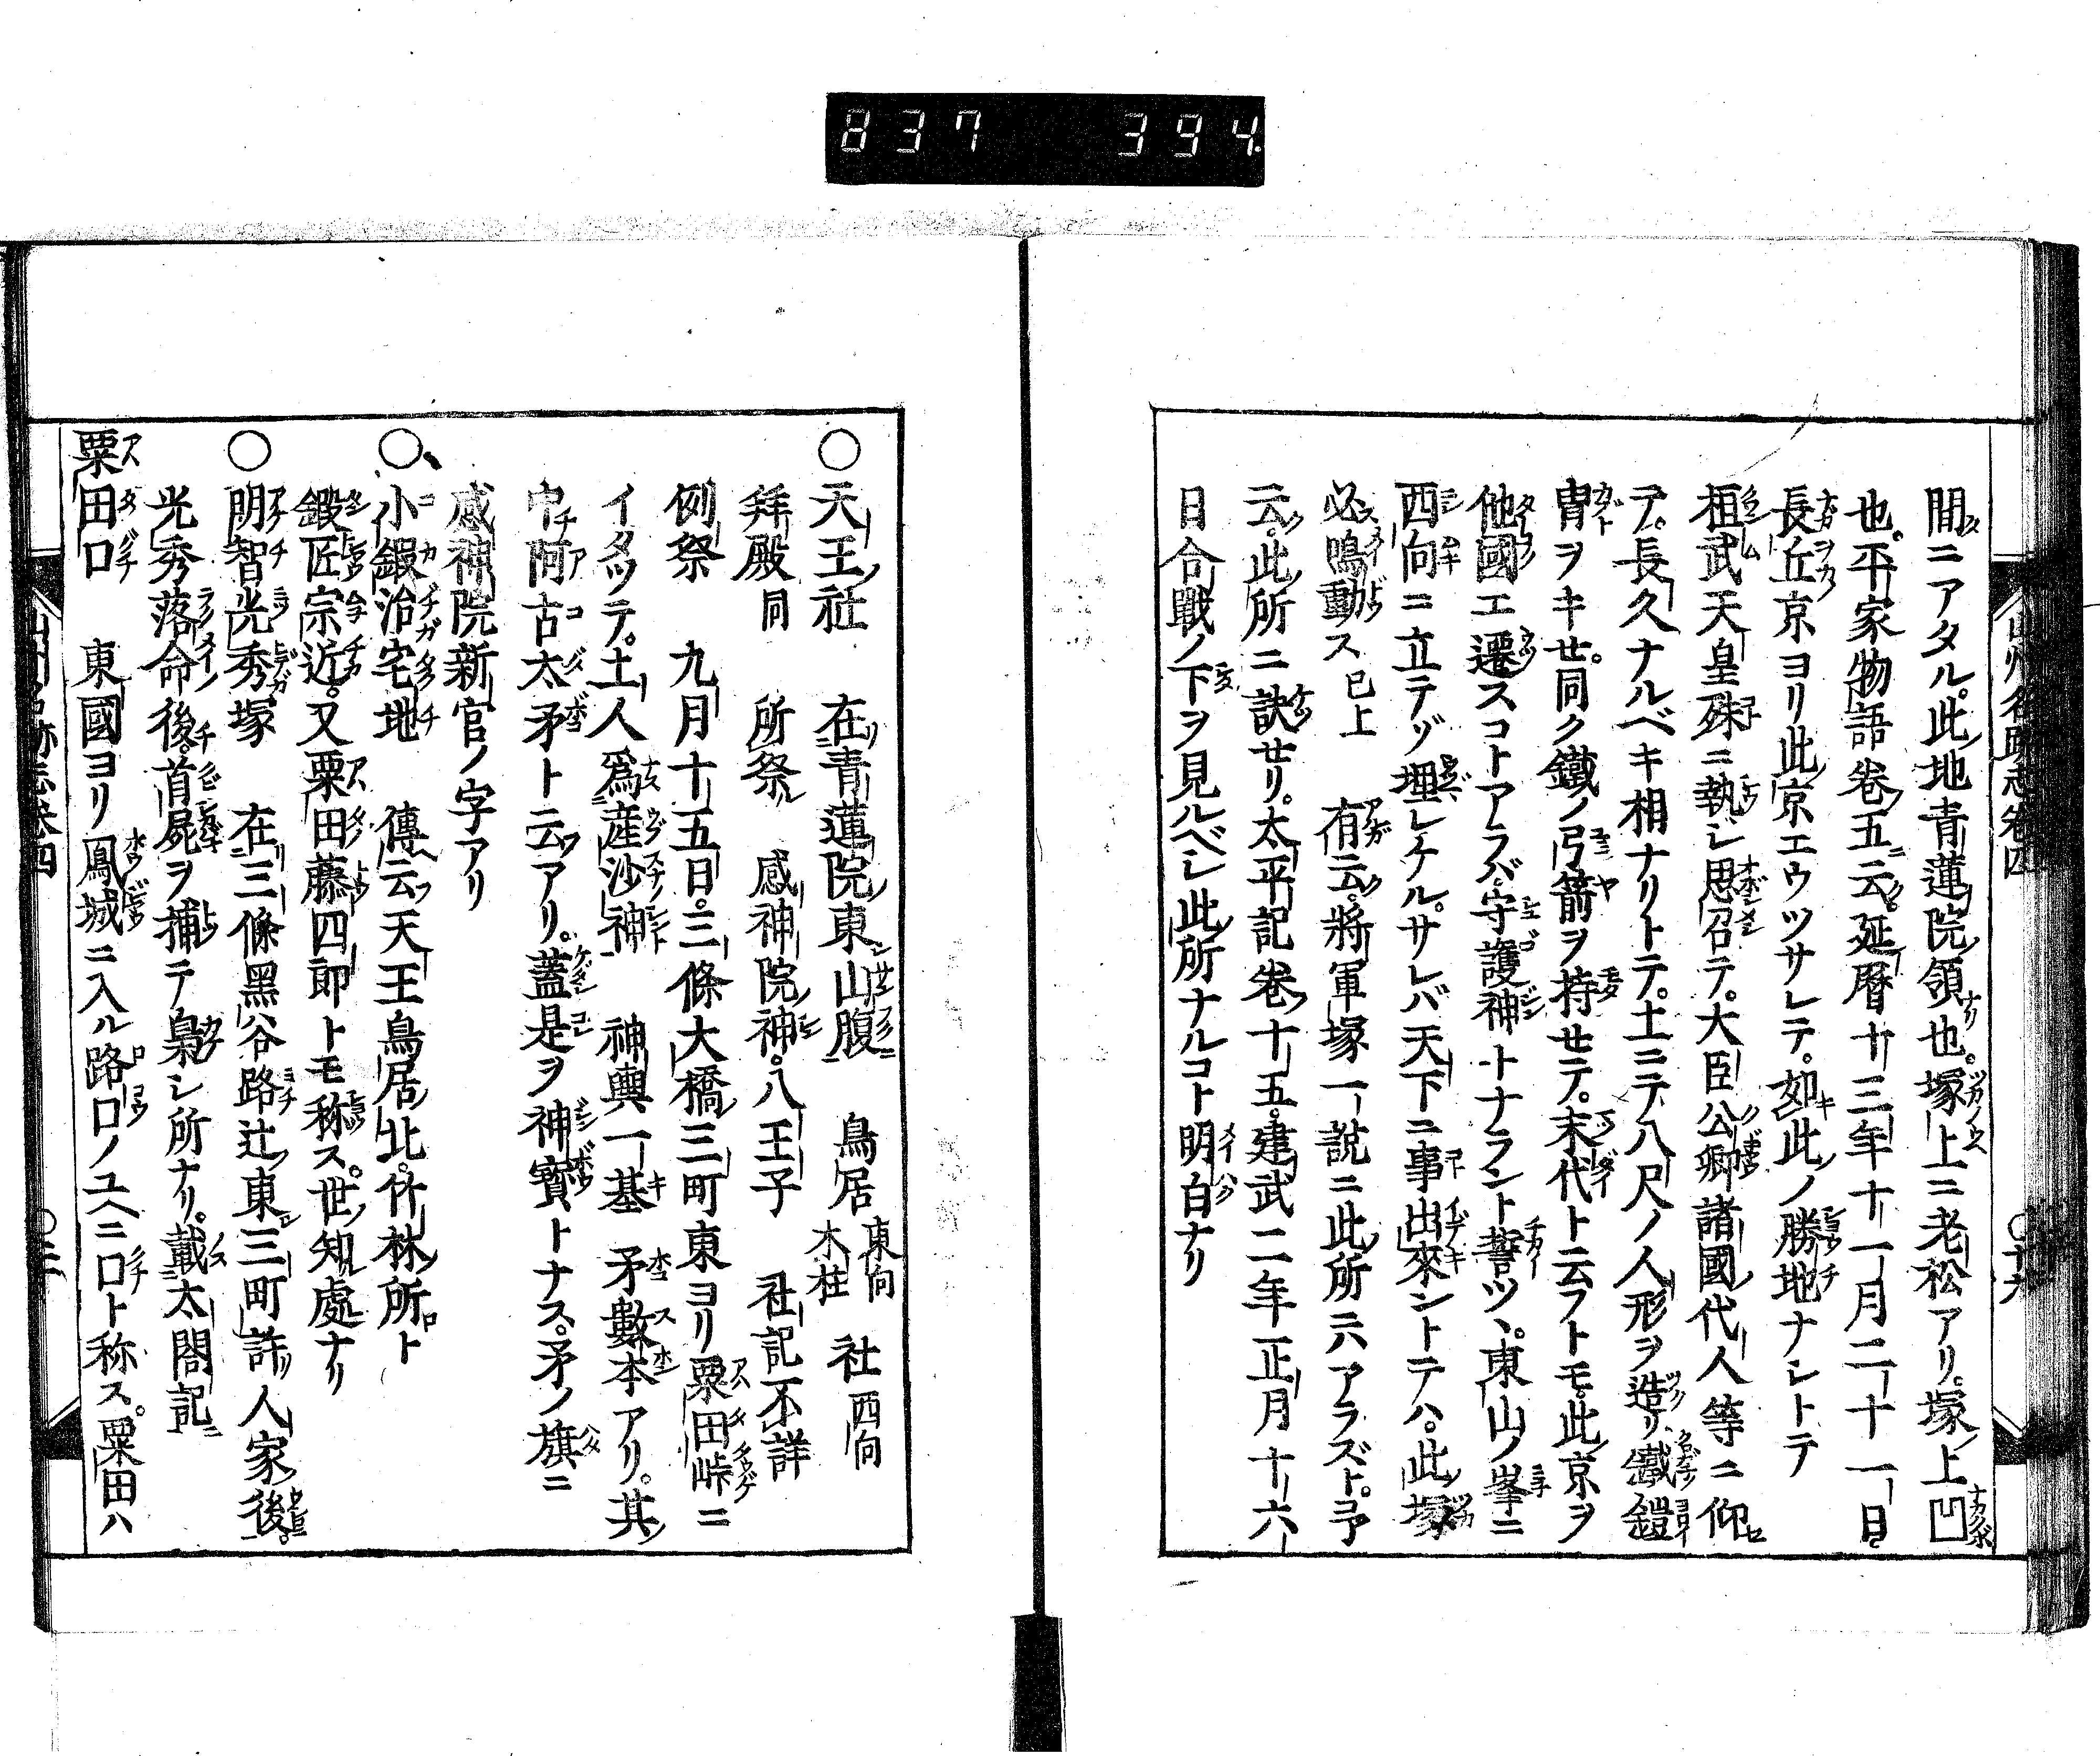 837 394
間ニアタル。此地青蓮院領也。塚上ニ老松アリ。塚上凹
也。平家物語卷五云。延暦十三年十一月二十一日
長丘京ヨリ此京エウツサレテ。如此ノ勝地ナシトテ
桓武天皇殊ニ執シ思召テ。大臣公卿諸國代人等ニ仰
テ。長久ナルベキ相ナリトテ。土ニテ八尺ノ人形ヲ造リ。鐵鎧
冑ヲキせ。同ク鐵ノ弓箭ヲ持せテ。末代ト云フトモ。此京ヲ
他國エ遷スコトアラバ。守護神トナラント誓ツヽ。東山ノ峯ニ
西向ニ立テヅ埋レケル。サレバ天下ニ事出來ントテハ。此塚
必鳴動ス 已上 有云。將軍塚一說ニ此所ニハアラズト。予
云。此所ニ訣せリ。太平記卷十五。建武二年正月十六
日合戰ノ下ヲ見ルベシ此所ナルコト明白ナリ
○天王社 在青蓮院東山腹 鳥居 東向 木柱 社 西向
拜殿 同 所祭 感神院神。八王子 社記不詳
例祭 九月十五日。三條大橋三町東ヨリ粟田峠ニ
イタツテ。土人爲産沙神 神輿一基 矛數本アリ。其
中阿古太矛ト云アリ。蓋是ヲ神寶トナス。矛ノ旗ニ
感神院新宮ノ字アリ
○小鍜治宅地 傳云天王鳥居北。竹林所ト
鍛匠宗近。又粟田藤四郎トモ称ス。世知處ナリ
○明智光秀塚 在三條黑谷路辻東三町許人家後。
光秀落命後。首屍ヲ捕テ梟シ所ナリ。載太閤記
粟田口 東國ヨリ鳳城ニ入ル路口ノユヘニ口ト称ス。粟田ハ